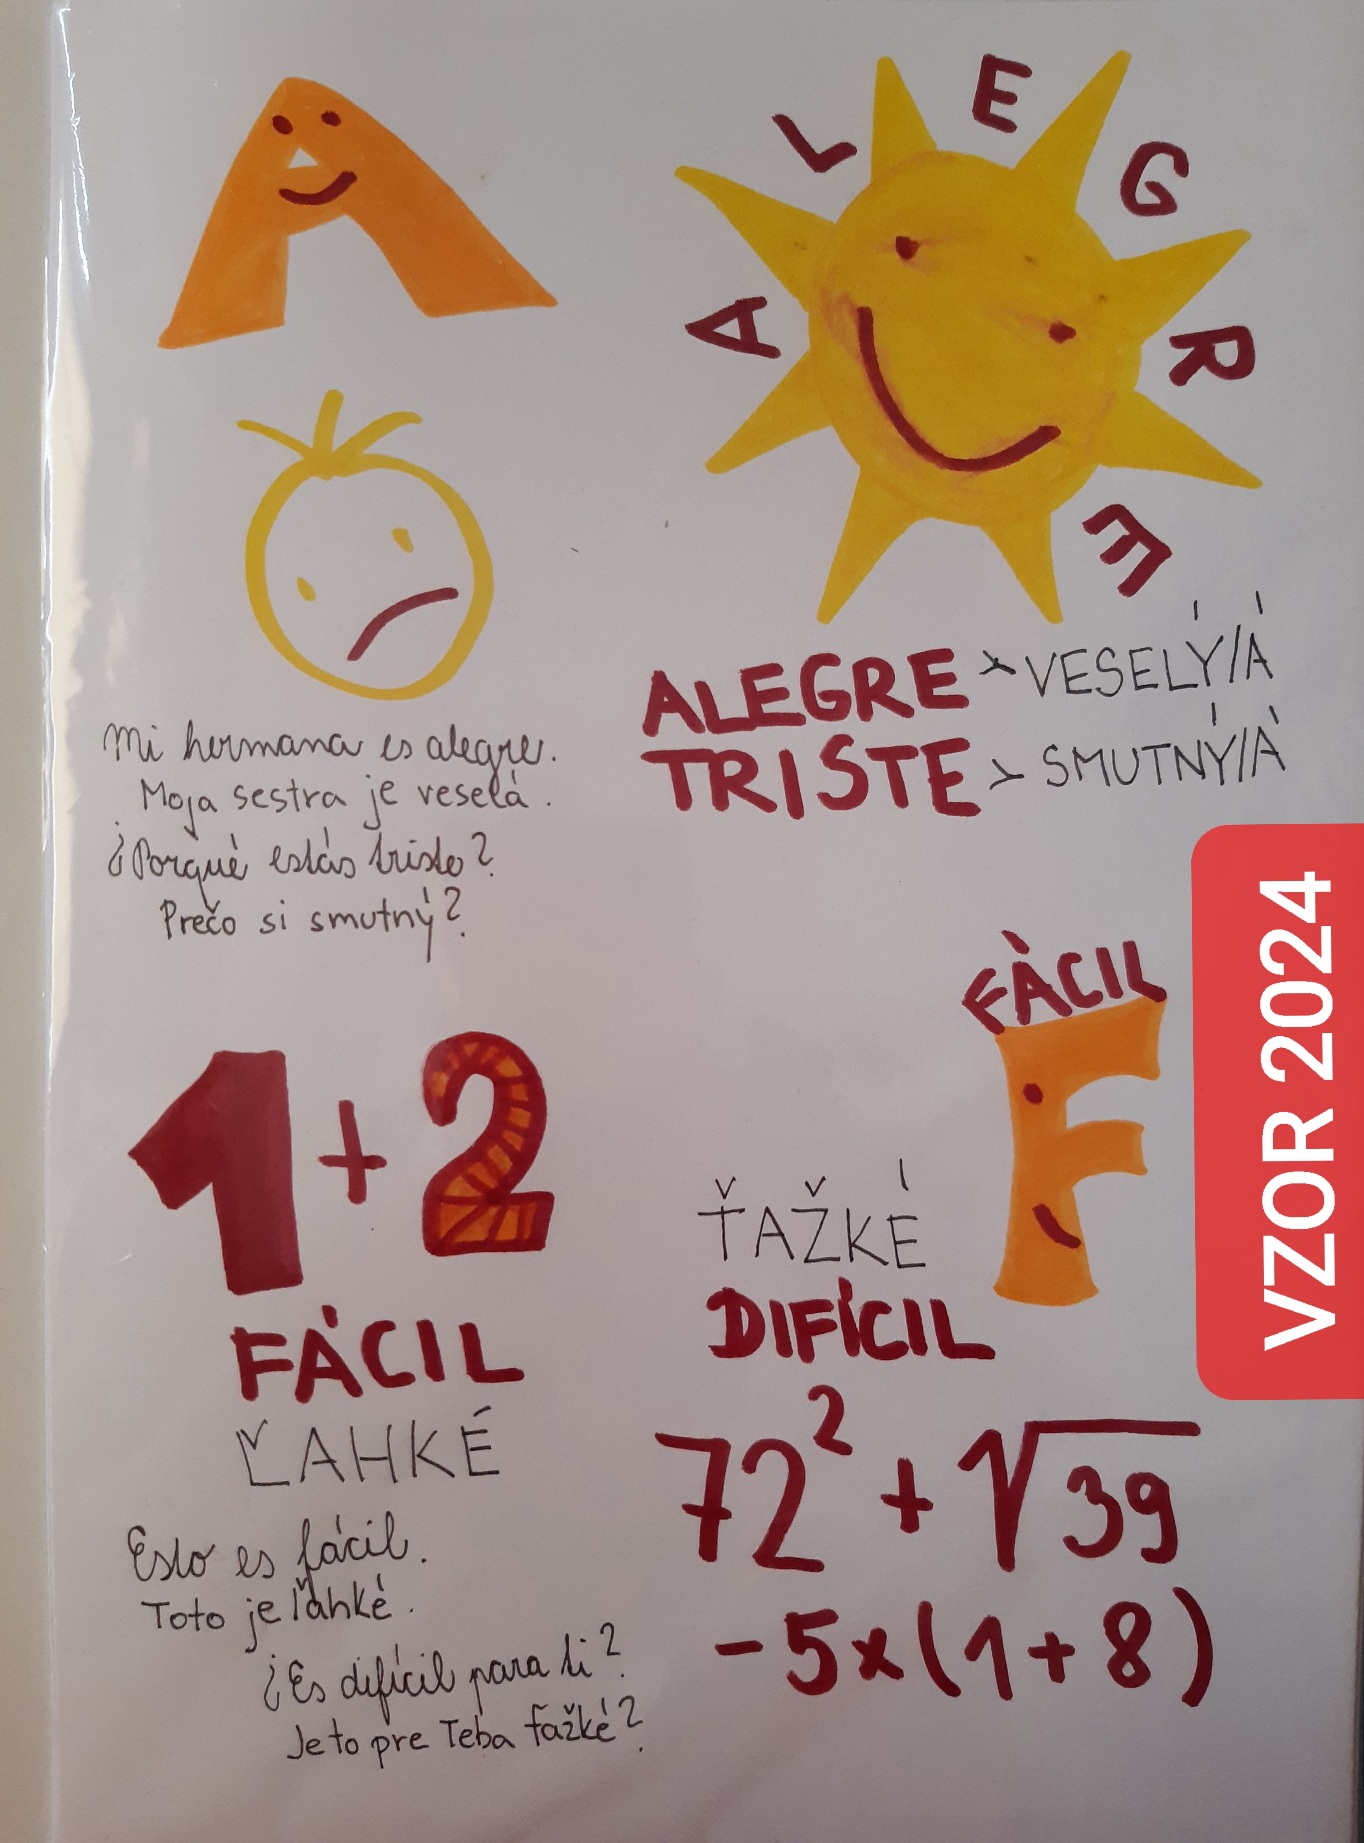 ALEGRE
ALEGRE > VESELÝ/Á
TRISTE > SMUTNÝ/Á
Mi hermana es alegre.
Moja sestra je veselá.
¿Porqué estás triste?
Prečo si smutný?
VZOR 2024
FÀCIL
F
1+2
FÁCIL
ĽAHKÉ
ŤAŽKÉ
DIFÍCIL
72² + √39
-5x(1+8)
Esto es fácil.
Toto je ľahké.
¿Es difícil para ti?
Je to pre Teba ťažké?
A